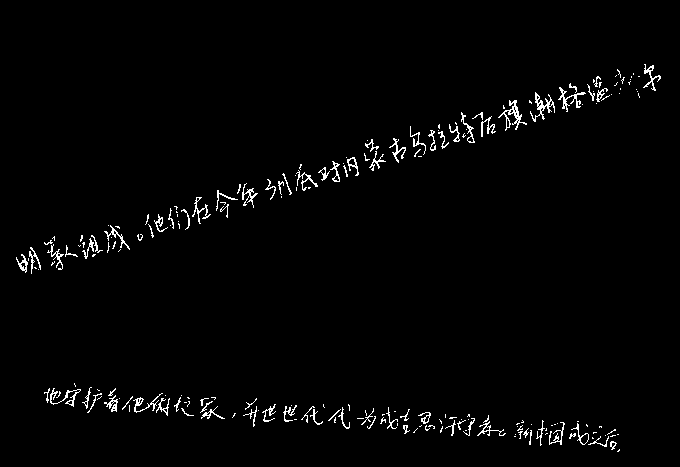 明等人组成。他们在今年3月底对内蒙古乌拉特后旗潮格温都尔
地守护着他们的家，并世世代代为成吉思汗守寿。新中国成立后，